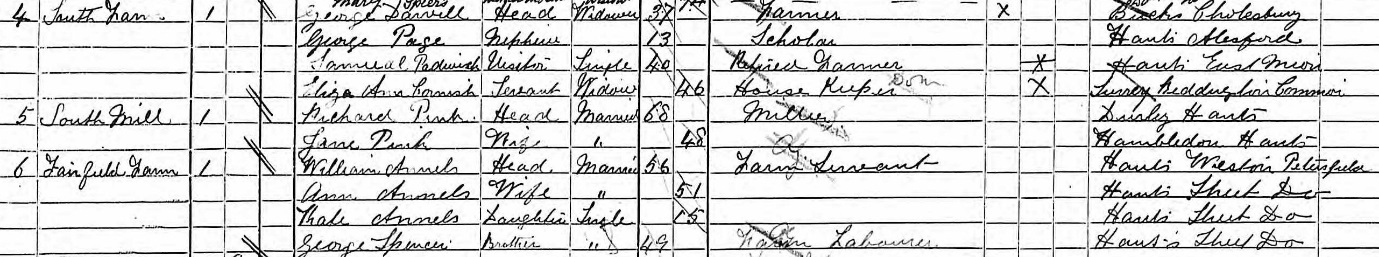 Mary Spiers
4 South Farm 1 George Darvill Head Widower 37 Farmer X Bucks Cholesbury
George Page Nephew 13 Scholar Hants Alesford
Samueal Padwick Visitor Single 40 Retired Farmer X Hants East Meon
Eliza Ann Cornish Servant Widow 46 House Keeper Dom X Surrey Beddington Common
5 South Mill 1 Richard Pink Head Married 68 Miller Durley Hants
Jane Pink Wife " 48 Hambledon Hants
6 Fairfield Farm 1 William Annels Head Married 56 Farm Servant Hants Weston Petersfield
Ann Annels Wife " 51 Hants Sheet Do
Kate Annels Daughter Single 15 Hants Sheet Do
George Spencer Brother " 49 Farm Labourer Hants Sheet Do